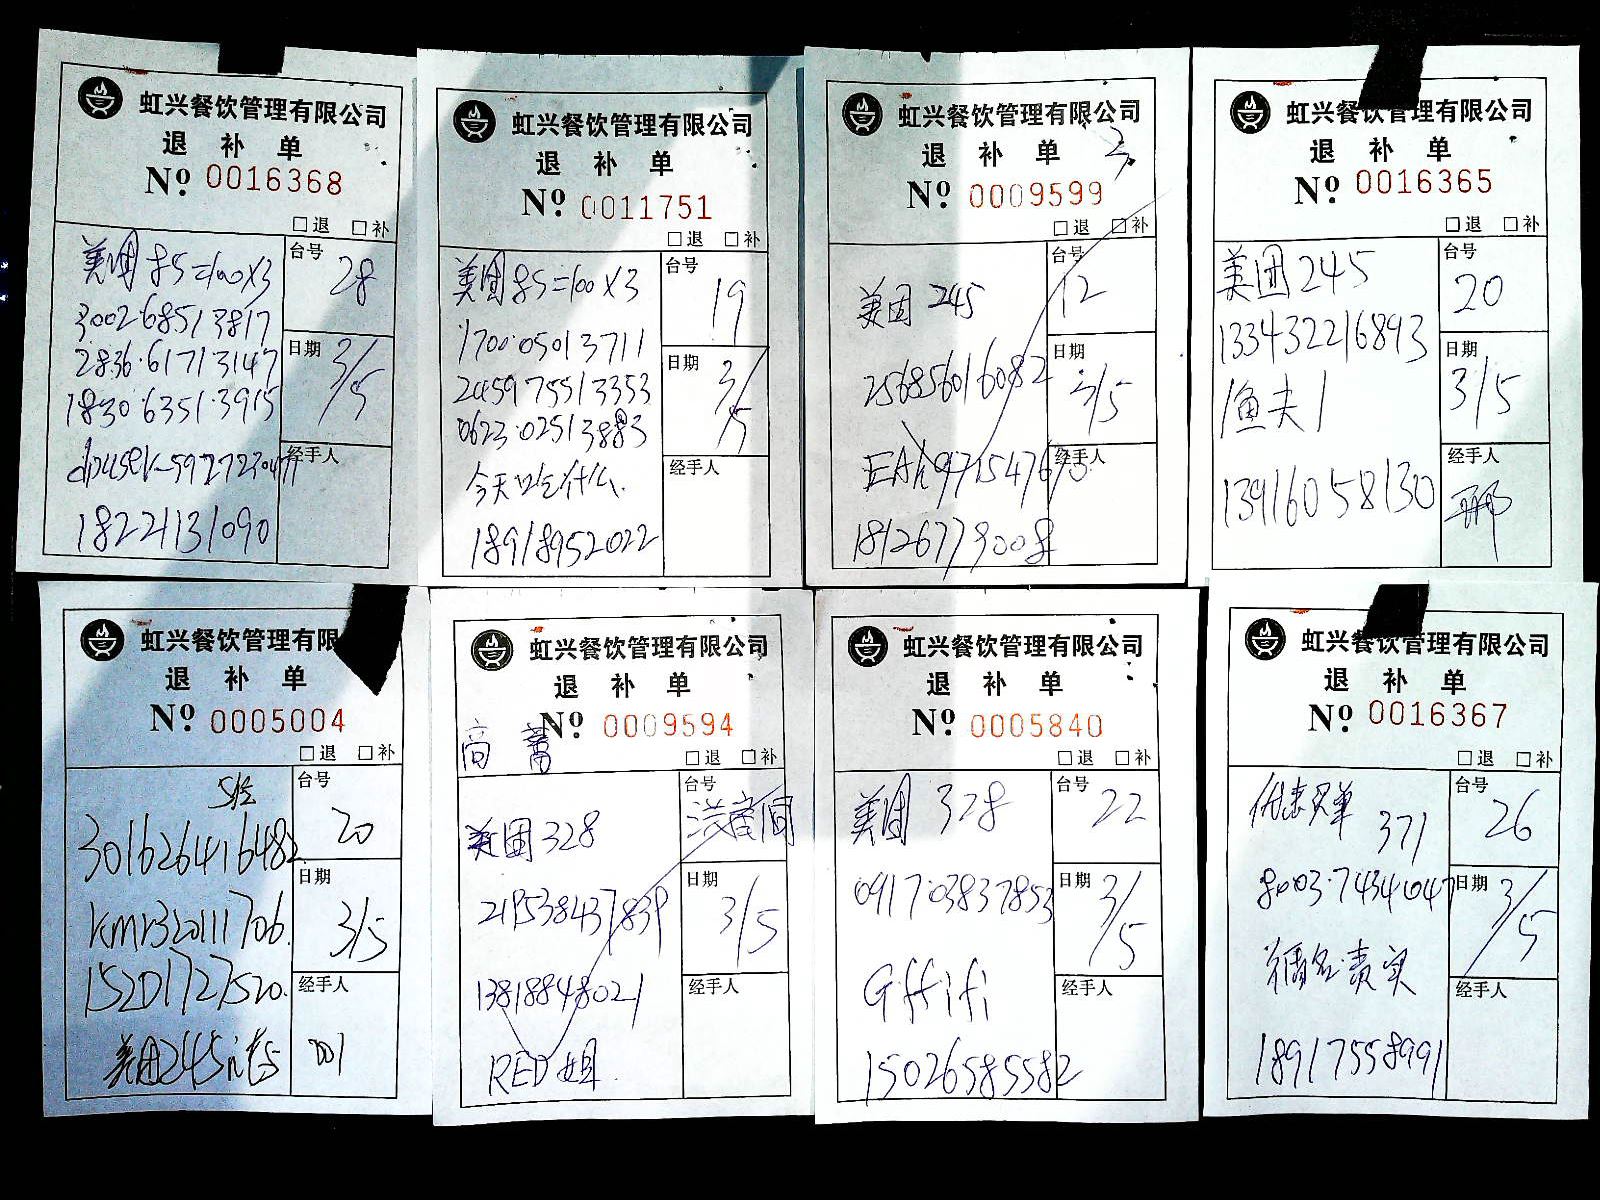 虹兴餐饮管理有限公司
退 补 单
Nº 0016368
□退 □补
美团85=100X3
3002·68513817
2836·61713147
1830·63513915
dpuser-5927230477
18221131090
台号
28
日期
3/5
经手人
虹兴餐饮管理有限公司
退 补 单
Nº 0011751
□退 □补
美团85=100X3
1700·05013711
245975513353
0623·02513883
今天吃什么
18918952022
台号
19
日期
3/5
经手人
虹兴餐饮管理有限公司
退 补 单
Nº 0009599
□退 □补
美团 245
256856016082
18126779008
台号
12
日期
3/5
经手人
虹兴餐饮管理有限公司
退 补 单
Nº 0016365
□退 □补
美团245
133432216893
渔夫1
13916058130
台号
20
日期
3/5
经手人
邢
虹兴餐饮管理有限
退 补 单
Nº 0005004
□退 □补
301626416482
kmr320111706
15201727520
美团245
台号
20
日期
3/5
经手人
001
虹兴餐饮管理有限公司
退 补 单
Nº 0009594
□退 □补
高
美团328
219538437839
13818848021
RED姐
台号
日期
3/5
经手人
虹兴餐饮管理有限公司
退 补 单
Nº 0005840
□退 □补
美团 328
091703837853
Giffifi
15026585582
台号
22
日期
3/5
经手人
虹兴餐饮管理有限公司
退 补 单
Nº 0016367
□退 □补
优惠买单
371
8003·74341047
18917558991
台号
26
日期
3/5
经手人